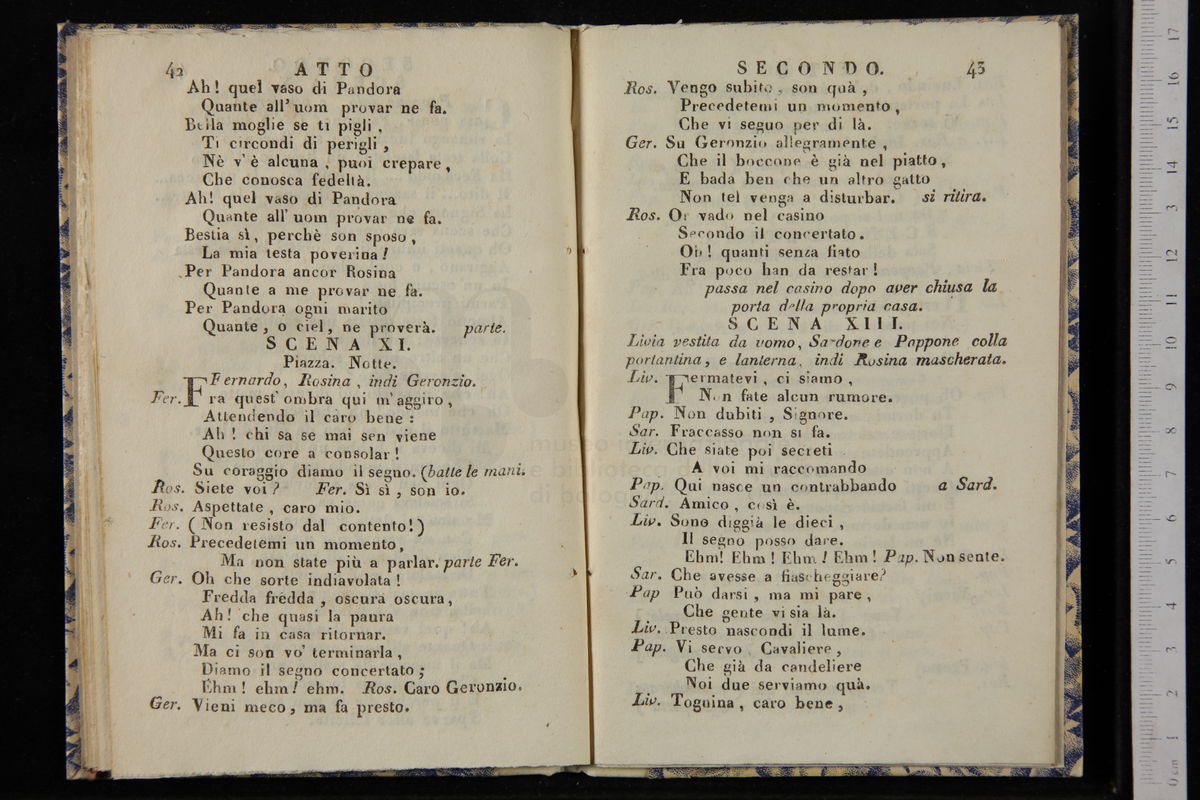 42 ATTO
Ah! quel vaso di Pandora
Quante all' uom provar ne fa.
Bella moglie se ti pigli,
Ti circondi di perigli,
Nè v' è alcuna, puoi crepare,
Che conosca fedeltà.
Ah! quel vaso di Pandora
Quante all' uom provar ne fa.
Bestia sì, perchè son sposo,
La mia testa poverina!
Per Pandora ancor Rosina
Quante a me provar ne fa.
Per Pandora ogni marito
Quante, o ciel, ne proverà. parte.
SCENA XI.
Piazza. Notte.
Fernardo, Rosina, indi Geronzio.
Fer. Fra quest' ombra qui m' aggiro,
Attendendo il caro bene:
Ah! chi sa se mai sen viene
Questo core a consolar!
Su coraggio diamo il segno. (batte le mani.
Ros. Siete voi? Fer. Sì sì, son io.
Ros. Aspettate, caro mio.
Fer. (Non resisto dal contento!)
Ros. Precedetemi un momento,
Ma non state più a parlar. parte Fer.
Ger. Oh che sorte indiavolata!
Fredda fredda, oscura oscura,
Ah! che quasi la paura
Mi fa in casa ritornar.
Ma ci son vo' terminarla,
Diamo il segno concertato;
Ehm! ehm! ehm. Ros. Caro Geronzio.
Ger. Vieni meco, ma fa presto.
SECONDO. 43
Ros. Vengo subito, son quà,
Precedetemi un momento,
Che vi seguo per di là.
Ger. Su Geronzio allegramente,
Che il boccone è già nel piatto,
E bada ben che un altro gatto
Non tel venga a disturbar. si ritira.
Ros. Or vado nel casino
Secondo il concertato.
Oh! quanti senza fiato
Fra poco han da restar!
passa nel casino dopo aver chiusa la
porta della propria casa.
SCENA XIII.
Livia vestita da uomo, Sardone e Pappone colla
portantina, e lanterna, indi Rosina mascherata.
Liv. Fermatevi, ci siamo,
Non fate alcun rumore.
Pap. Non dubiti, Signore.
Sar. Fraccasso non si fa.
Liv. Che siate poi secreti
A voi mi raccomando
Pap. Qui nasce un contrabbando a Sard.
Sard. Amico, così è.
Liv. Sono diggià le dieci,
Il segno posso dare.
Ehm! Ehm! Ehm! Ehm! Pap. Non sente.
Sar. Che avesse a fiascheggiare?
Pap Può darsi, ma mi pare,
Che gente vi sia là.
Liv. Presto nascondi il lume.
Pap. Vi servo, Cavaliere,
Che già da candeliere
Noi due serviamo quà.
Liv. Tognina, caro bene,